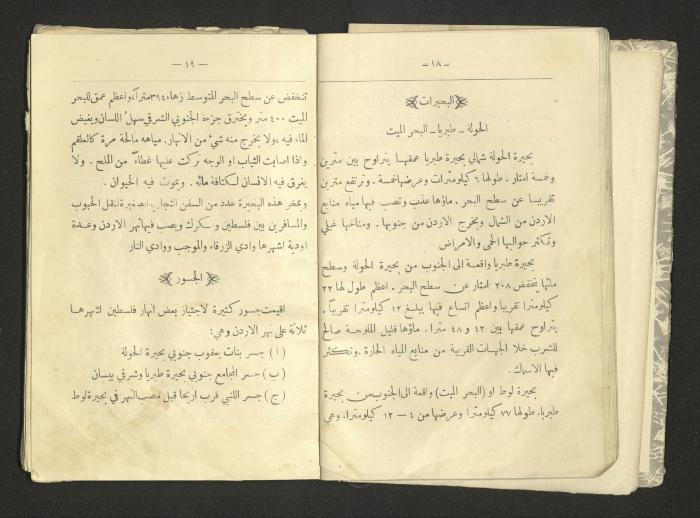 -١٨-
البحيرات
الحولة - طبريا - البحر الميت
بحيرة الحولة شمالي بحيرة طبريا عمقها يتراوح بين مترين
وخمسة امتار . طولها ٦ كيلومترات وعرضها خمسة . وترتفع مترين
تقريبا عن سطح البحر . ماؤها عذب وتصب فيها مياه منابع
الاردن من الشمال ويخرج الاردن من جنوبها . ومناخها غيلي
وتكثر حواليها الحمى والامراض
بحيرة طبريا واقعة الى الجنوب من بحيرة الحولة وسطح
مائها ينخفض ٢٠٨ امتار عن سطح البحر . اعظم طول لها ٢٢
كيلومترا تقريبا واعظم اتساع فيها يبلغ ١٢ كيلومترا تقريباً .
يتراوح عمقها بين ٤٢ و ٤٨ مترا . ماؤها قليل الملوحة صالح
للشرب خلا الجهات القريبة من منابع المياه الحارة . وتكثر
فيها الاسماك .
بحيرة لوط او (البحر الميت) واقعة الى الجنوب من بحيرة
طبريا . طولها ٧٧ كيلومترا وعرضها من ٤ – ١٢ كيلومترا . وهي
— ١٩ —
تنخفض عن سطح البحر المتوسط زهاء ٣٩٤ متراً ، واعظم عمق للبحر
الميت ٤٠٠ متر ويخترق جزءه الجنوبي الشرقي سهل اللسان ويغيض
الماء فيه ، ولا يخرج منه شيء من الانهار . مياهه مالحة مرة كالعلقم
واذا اصابت الثياب او الوجه تركت عليها غطاءً من الملح . ولا
يغرق فيه الانسان لكثافة مائه . ويموت فيه الحيوان .
ويمخر هذه البحيرة عدد من السفن التجارية الصغيرة لنقل الحبوب
والمسافرين بين فلسطين والكرك ويصب فيها نهر الاردن وعدة
اودية اشهرها وادي الزرقاء والموجب ووادي النار
الجسور
اقيمت جسور كثيرة لاجتياز بعض انهار فلسطين اشهرها
ثلاثة على نهر الاردن وهي :
( ا ) جسر بنات يعقوب جنوبي بحيرة الحولة
( ب ) جسر المجامع جنوبي بحيرة طبريا وشرقي بيسان
( ج ) جسر اللنبي قرب اريحا قبل مصب النهر في بحيرة لوط